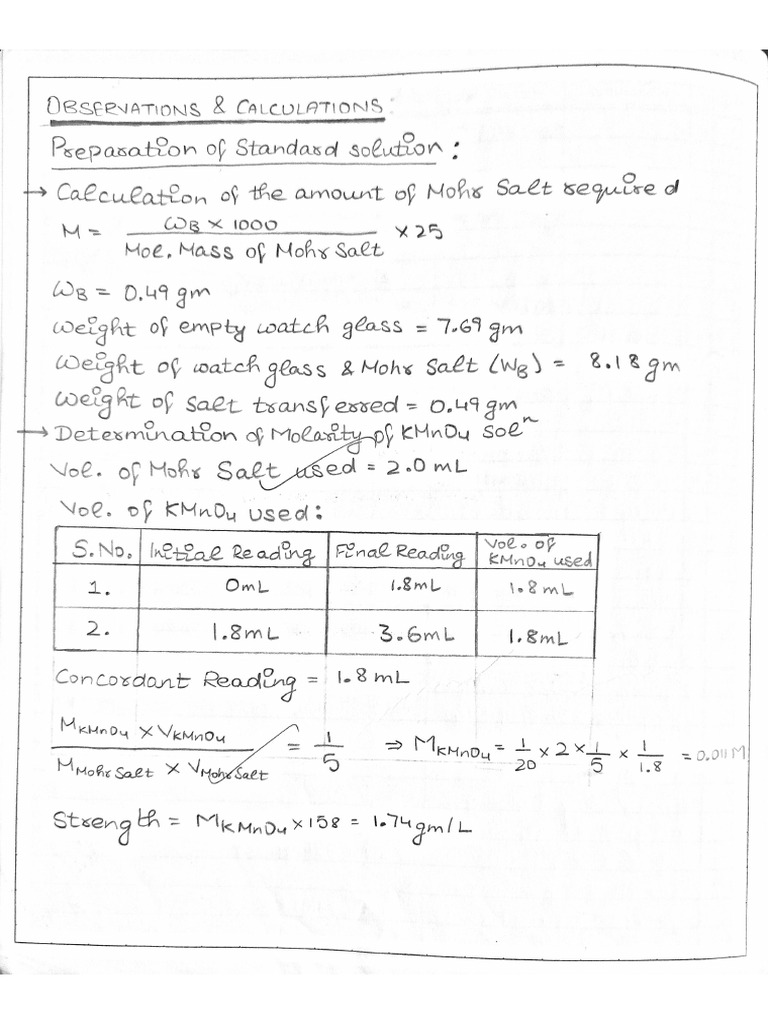 OBSERVATIONS & CALCULATIONS:
Preparation of Standard solution :
→ Calculation of the amount of Mohr Salt required
M = (WB × 1000 / Mol. Mass of Mohr Salt) × 25
WB = 0.49 gm
Weight of empty watch glass = 7.69 gm
Weight of watch glass & Mohr Salt (WB) = 8.18 gm
Weight of salt transferred = 0.49 gm
→ Determination of Molarity of KMnO4 Solⁿ
Vol. of Mohr Salt used = 2.0 mL
Vol. of KMnO4 used :
S.No. Initial Reading Final Reading Vol. of KMnO4 used
1. 0mL 1.8mL 1.8mL
2. 1.8mL 3.6mL 1.8mL
Concordant Reading = 1.8 mL
MKMnO4 × VKMnO4 / MMohr Salt × VMohr Salt = 1/5 ⇒ MKMnO4 = 1/20 × 2 × 1/5 × 1/1.8 = 0.011 M
Strength = MKMnO4 × 158 = 1.74 gm/L